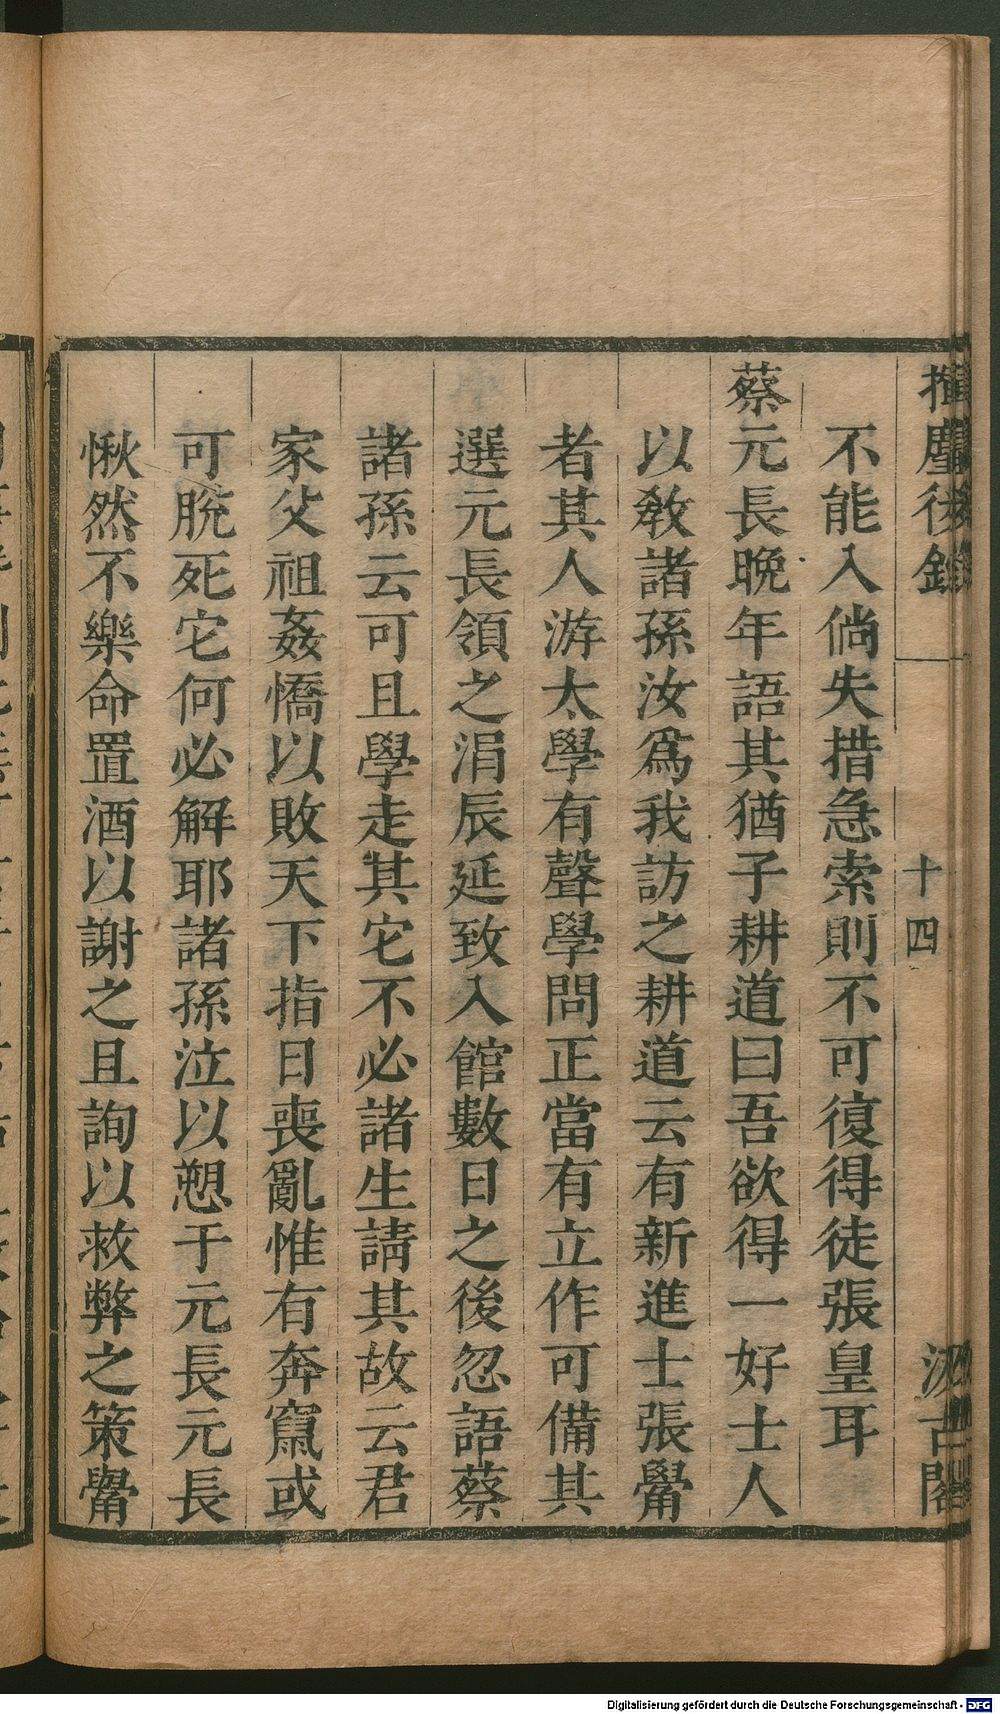 揮麈後錄
十四
汲古閣
不能入倘失措急索則不可復得徒張皇耳
蔡元長晚年語其猶子耕道曰吾欲得一好士人
以敎諸孫汝爲我訪之耕道云有新進士張觷
者其人游太學有聲學問正當有立作可備其
選元長領之涓辰延致入館數日之後忽語蔡
諸孫云可且學走其它不必諸生請其故云君
家父祖姦憍以敗天下指日喪亂惟有奔竄或
可脫死它何必解耶諸孫泣以愬于元長元長
愀然不樂命置酒以謝之且詢以救弊之策觷
Digitalisierung gefördert durch die Deutsche Forschungsgemeinschaft - DFG